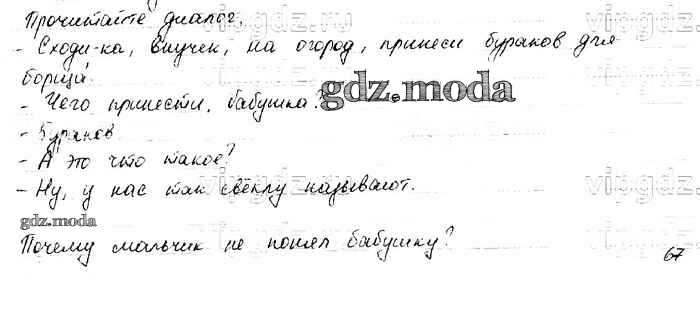 Прочитайте диалог.
- Сходи-ка, внучек, на огород, принеси бураков для
борща.
- Чего принести, бабушка?
- Бураков
- А это что такое?
- Ну, у нас так свёклу называют.
Почему мальчик не понял бабушку?
67
gdz.moda
gdz.moda
vipgdz.ru
vipgdz.ru
vipgdz.ru
vipgdz.ru